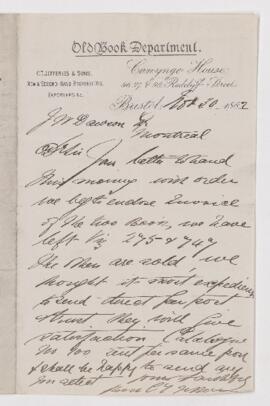 Old Book Department.
C. T. Jefferies & Sons,
New & Second-Hand Booksellers,
Exporters &c.
Canynge House,
Redcliff Street
Bristol, Nov 30 1882
J W Dawson
Montreal
Dr Sir Your letter to hand
this morning with order
we beg to enclose Invoice
of the two Books, we have
left viz 275 & 747
the others are sold, we
thought it most expedient
to send direct per post
& trust they will give
satisfaction Catalogue
No 100 sent per same post
& shall be happy to send any
you select yours faithfully